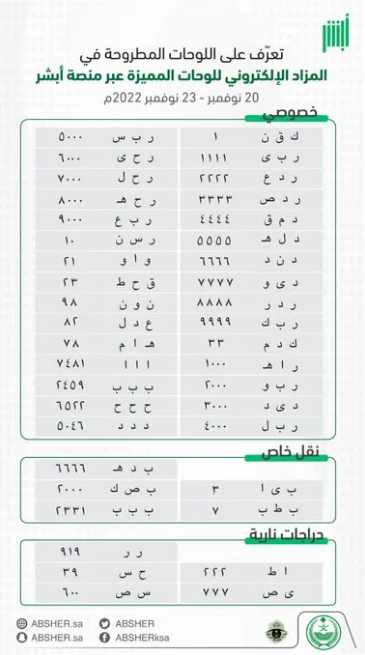 أبشر
تعرّف على اللوحات المطروحة في
المزاد الإلكتروني للوحات المميزة عبر منصة أبشر
20 نوفمبر - 23 نوفمبر 2022م
خصوصي
ك ق ن ١ ر ب س ٥٠٠٠
ر ب ى ١١١١ ر ح ى ٦٠٠٠
ر د ع ٢٢٢٢ ر ح ل ٧٠٠٠
ر د ص ٣٣٣٣ ر ح هـ ٨٠٠٠
د م ق ٤٤٤٤ ر ب ع ٩٠٠٠
د ل هـ ٥٥٥٥ ر س ن ١٠
د ن د ٦٦٦٦ و ا و ٢١
د ى و ٧٧٧٧ ق ح ط ٢٣
ر د ر ٨٨٨٨ ن و ن ٩٨
ر ب ك ٩٩٩٩ ع د ل ٨٢
ك د م ٣٣ هـ ا م ٧٨
ر ا هـ ١٠٠٠ ا ا ا ٧٤٨١
ر ب و ٢٠٠٠ ب ب ب ٢٤٥٩
د ى د ٣٠٠٠ ح ح ح ٦٥٢٢
ر ب ل ٤٠٠٠ د د د ٥٠٤٦
نقل خاص
ب د هـ ٦٦٦٦
ب ى ا ٣ ب ص ك ٢٠٠٠
ب ط ب ٧ ب ب ب ٢٣٣١
دراجات نارية
ر ر ٩١٩
ا ط ٢٢٢ ح س ٣٩
ى ص ٧٧٧ س ص ٦٠٠
ABSHER.sa ABSHER
ABSHER.sa ABSHERksa